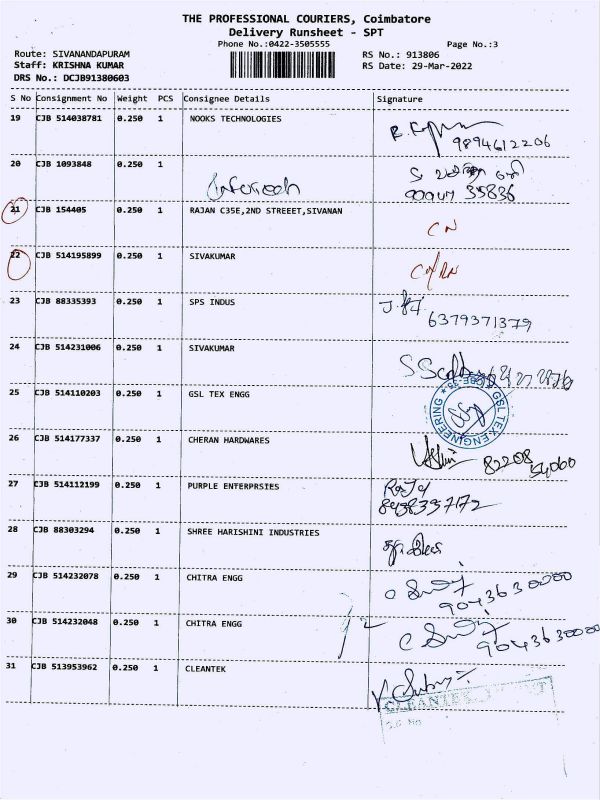 THE PROFESSIONAL COURIERS, Coimbatore
Delivery Runsheet - SPT
Phone No.:0422-3505555
Page No.:3
Route: SIVANANDAPURAM
RS No.: 913806
Staff: KRISHNA KUMAR
RS Date: 29-Mar-2022
DRS No.: DCJB91380603
S No Consignment No Weight PCS Consignee Details Signature
19 CJB 514038781 0.250 1 NOOKS TECHNOLOGIES
9894612206
20 CJB 1093848 0.250 1
35836
21 CJB 154405 0.250 1 RAJAN C35E,2ND STREEET,SIVANAN
CN
22 CJB 514195899 0.250 1 SIVAKUMAR
23 CJB 88335393 0.250 1 SPS INDUS
6379371379
24 CJB 514231006 0.250 1 SIVAKUMAR
25 CJB 514110203 0.250 1 GSL TEX ENGG
GSL TEX ENGINEERING
26 CJB 514177337 0.250 1 CHERAN HARDWARES
82208
54060
27 CJB 514112199 0.250 1 PURPLE ENTERPRSIES
28 CJB 88303294 0.250 1 SHREE HARISHINI INDUSTRIES
29 CJB 514232078 0.250 1 CHITRA ENGG
9043630000
30 CJB 514232048 0.250 1 CHITRA ENGG
9043630000
31 CJB 513953962 0.250 1 CLEANTEK